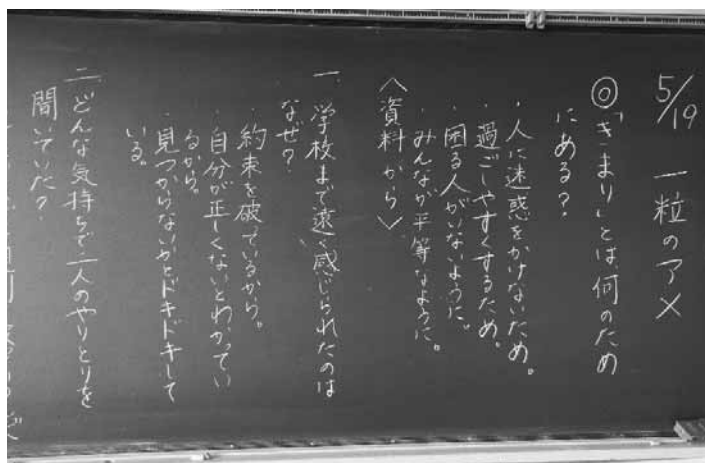 5/19 一粒のアメ
◎「きまり」とは何のため
にある？
・人に迷惑をかけないため。
・過ごしやすくするため。
・困る人がいないように。
・みんなが平等なように。
〈資料から〉
一．学校まで遠く感じられたのは
なぜ？
・約束を破っているから。
・自分が正しくないとわかってい
るから。
・見つからないかとドキドキして
いる。
二．どんな気持ちで二人のやりとりを
聞いていた？